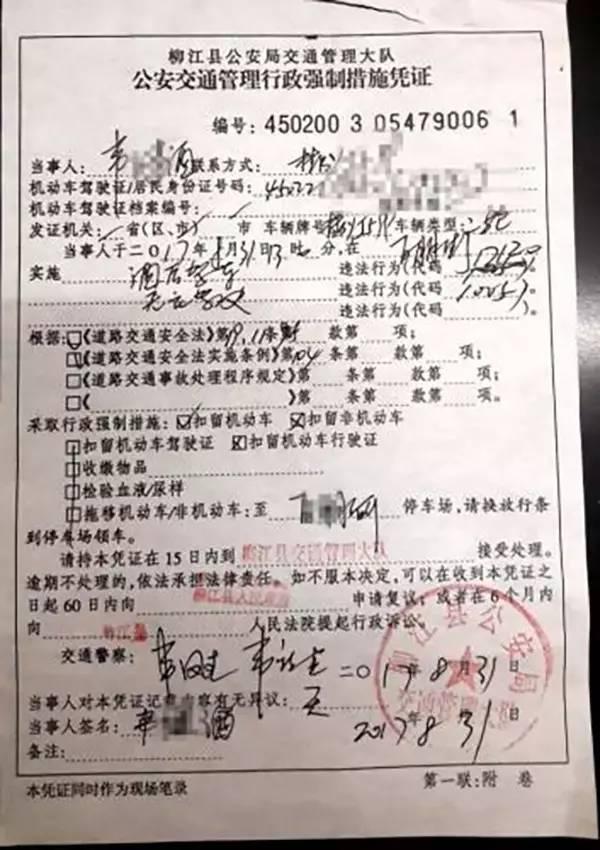 柳江县公安局交通管理大队
公安交通管理行政强制措施凭证
编号: 450200 3 05479006 1
当事人: 韦 酒 联系方式:
机动车驾驶证/居民身份证号码: 4522
机动车驾驶证档案编号:
发证机关: 省(区、市) 市 车辆牌号 车辆类型:
当事人于二〇17年8月31日 时 分,在
实施 酒后驾车 违法行为(代码 )。
违法行为(代码 1005)。
违法行为(代码 )。
根据: □《道路交通安全法》第 条第 款第 项;
□《道路交通安全法实施条例》第104条第 款第 项;
□《道路交通事故处理程序规定》第 条第 款第 项;
□《 》第 条第 款第 项。
采取行政强制措施: ☑扣留机动车 ☒扣留非机动车
□扣留机动车驾驶证 ☒扣留机动车行驶证
□收缴物品
□检验血液/尿样
□拖移机动车/非机动车: 至 停车场,请换放行条
到停车场领车。
请持本凭证在15日内到 柳江县交通管理大队 接受处理。
逾期不处理的,依法承担法律责任。如不服本决定,可以在收到本凭证之
日起60日内向 柳江县人民政府 申请复议; 或者在6个月内
向 柳江县 人民法院提起行政诉讼。
交通警察: 二〇17年8月31日
柳江县公安局
交通管理大队
当事人对本凭证记载内容有无异议: 无
当事人签名: 韦 酒 2017年8月31日
备注:
本凭证同时作为现场笔录
第一联:附 卷